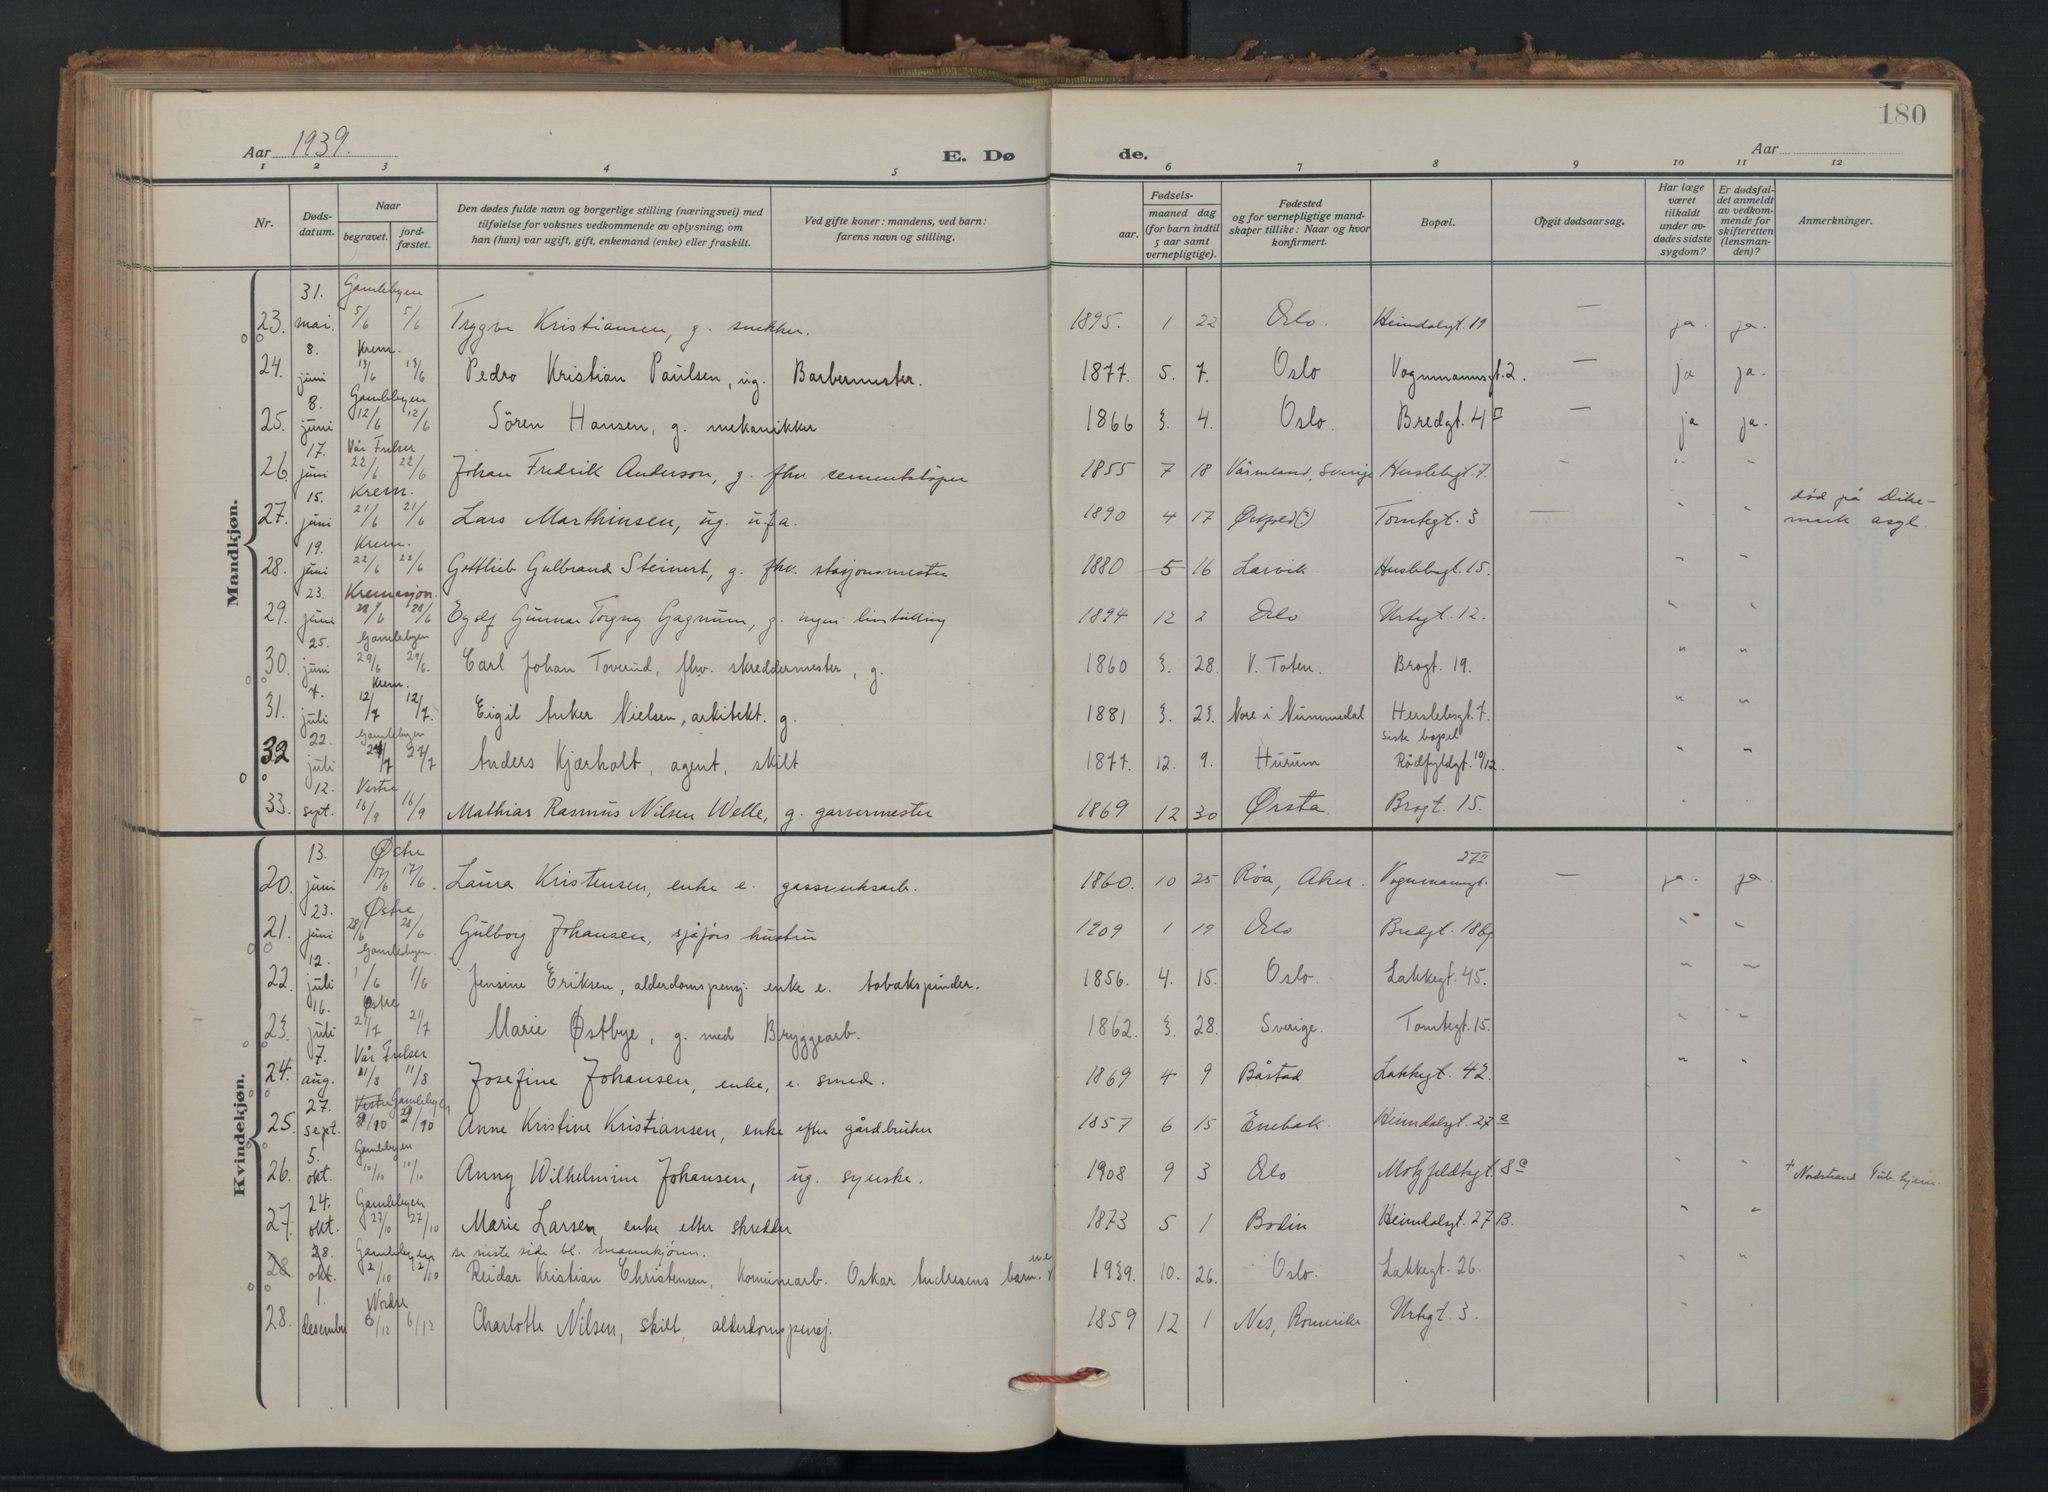 180
Aar 1939.
E. Dø de.
Aar
1 2 3 4 5 6 7 8 9 10 11 12
Nr.
Døds-
datum.
Naar
begravet.
jord-
fæstet.
Den dødes fulde navn og borgerlige stilling (næringsvei) med
tilføielse for voksnes vedkommende av oplysning, om
han (hun) var ugift, gift, enkemand (enke) eller fraskilt.
Ved gifte koner: mandens, ved barn:
farens navn og stilling.
Fødsels-
aar.
maaned dag
(for barn indtil
5 aar samt
vernepligtige).
Fødested
og for vernepligtige mand-
skaper tillike: Naar og hvor
konfirmert.
Bopæl.
Opgit dødsaarsag.
Har læge
været
tilkaldt
under av-
dødes sidste
sygdom?
Er dødsfal-
det anmeldt
av vedkom-
mende for
skifteretten
(lensman-
den)?
Anmerkninger.
Mandkjøn.
31. Gamlebyen
23. mai. 5/6 5/6 Trygve Kristiansen, g. snekker. 1895. 1 22 Oslo. Heimdalsgt. 19 — ja. ja.
8. Krem.
24. juni 13/6 13/6 Pedro Kristian Paulsen, ug. Barbermester. 1877. 5. 7. Oslo Vognmannsgt. 2. — ja ja.
8. Gamlebyen
25. juni 12/6 12/6 Sören Hansen, g. mekanikker 1866 3. 4. Oslo. Bredgt. 4 — ja ja.
17. Vår Frelser
26. juni 22/6 22/6 Johan Fredrik Anderson, g. fhv. sementstöper 1855 7 18 Värmland, Sverige Herslebsgt. 7. - " -
15. Krem.
27. juni 21/6 21/6 Lars Marthinsen, ug. u.f.a. 1890 4 17 Tomtegt. 3 — " " død på Dike-
mark asyl.
19. Krem.
28. juni 22/6 22/6 Gottlieb Gulbrand Steinert, g. fhv. stasjonsmester 1880 5 16 Larvik Herslebsgt. 15. " "
23. Kremasjon.
29. juni 28/6 28/6 Egolf Gunnar Torgny Gagnum, g. ingen livstilling 1894 12 2 Oslo Urtegt. 12. " "
25. Gamlebyen
30. juni 29/6 29/6. Carl Johan Toverud, fhv. skreddermester, g. 1860 3. 28. V. Toten. Brogt. 19. " "
7. Krem.
31. juli 12/7 12/7. Eigil Anker Nielsen, arkitekt. g. 1881 3. 23. Nore i Nummedal Herslebsgt. 7. " "
22. Gamlebyen siste bopel
32 juli 27/7 27/7 Anders Kjærholt, agent, skilt 1877. 12. 9. Hurum Rødfyldgt. 10/12. " "
12. Vestre
33. sept. 16/9 16/9 Mathias Rasmus Nilsen Welle, g. garvermester 1869 12 30 Ørsta. Brogt. 15. " "
Kvindekjøn.
13. Østre 27II
20. juni 17/6 17/6. Laura Kristensen, enke e. gassverksarb. 1860. 10 25 Røa, Aker. Vognmannsgt. — ja. ja.
23. Østre
21. juni 28/6 28/6 Gulborg Johansen, sjåførs hustru 1909 1 19 Oslo Bredgt. " "
12. Gamlebyen.
22. juli 1/6 1/6 Jensine Eriksen, alderdomspensj. enke e. tobakspinder. 1856. 4. 15. Oslo. Lakkegt. 45. " "
16. Østre
23. juli 21/7 21/7 Marie Østbye, g. med Bryggearb. 1862. 3. 28. Sverige. Tomtegt. 15. " "
7. Vår Frelser
24. aug. 11/8 11/8 Josefine Johansen, enke, e. smed. 1869 4 9 Båstad Lakkegt. 42. " "
27. Vestre Gamlebyen
25. sept. 2/10 2/10 Anne Kristine Kristiansen, enke efter gårdbruker 1857 6 15 Enebak. Heimdalsgt. 27a " "
5. Gamlebyen
26. okt. 10/10 10/10 Anny Wilhelmine Johansen, ug. syerske. 1908 9 3 Oslo Motzfeldtsgt. 8a " " + Nordstrand Tub. hjem.
24. Gamlebyen
27. okt. 27/10 27/10 Marie Larsen, enke etter skredder 1873 5 1 Bodin Heimdalsgt. 27 B. " "
28. Gamlebyen se neste side bl. mannkjønn.
28 okt. 2/10 2/10 Reidar Kristian Christensen, Komunearb. Oskar Andresens barn. 1939. 10. 26. Oslo. Lakkegt. 26.
1. Nordre
28. desember 6/12 6/12 Charlotte Nilsen, skilt, alderdomspensj. 1859 12 1 Nes, Romerike Urtegt. 3. " "